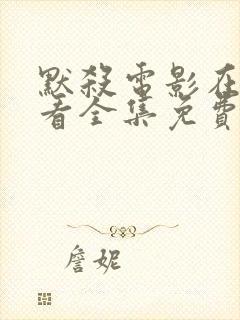 默殺電影在
看全集免費
詹妮